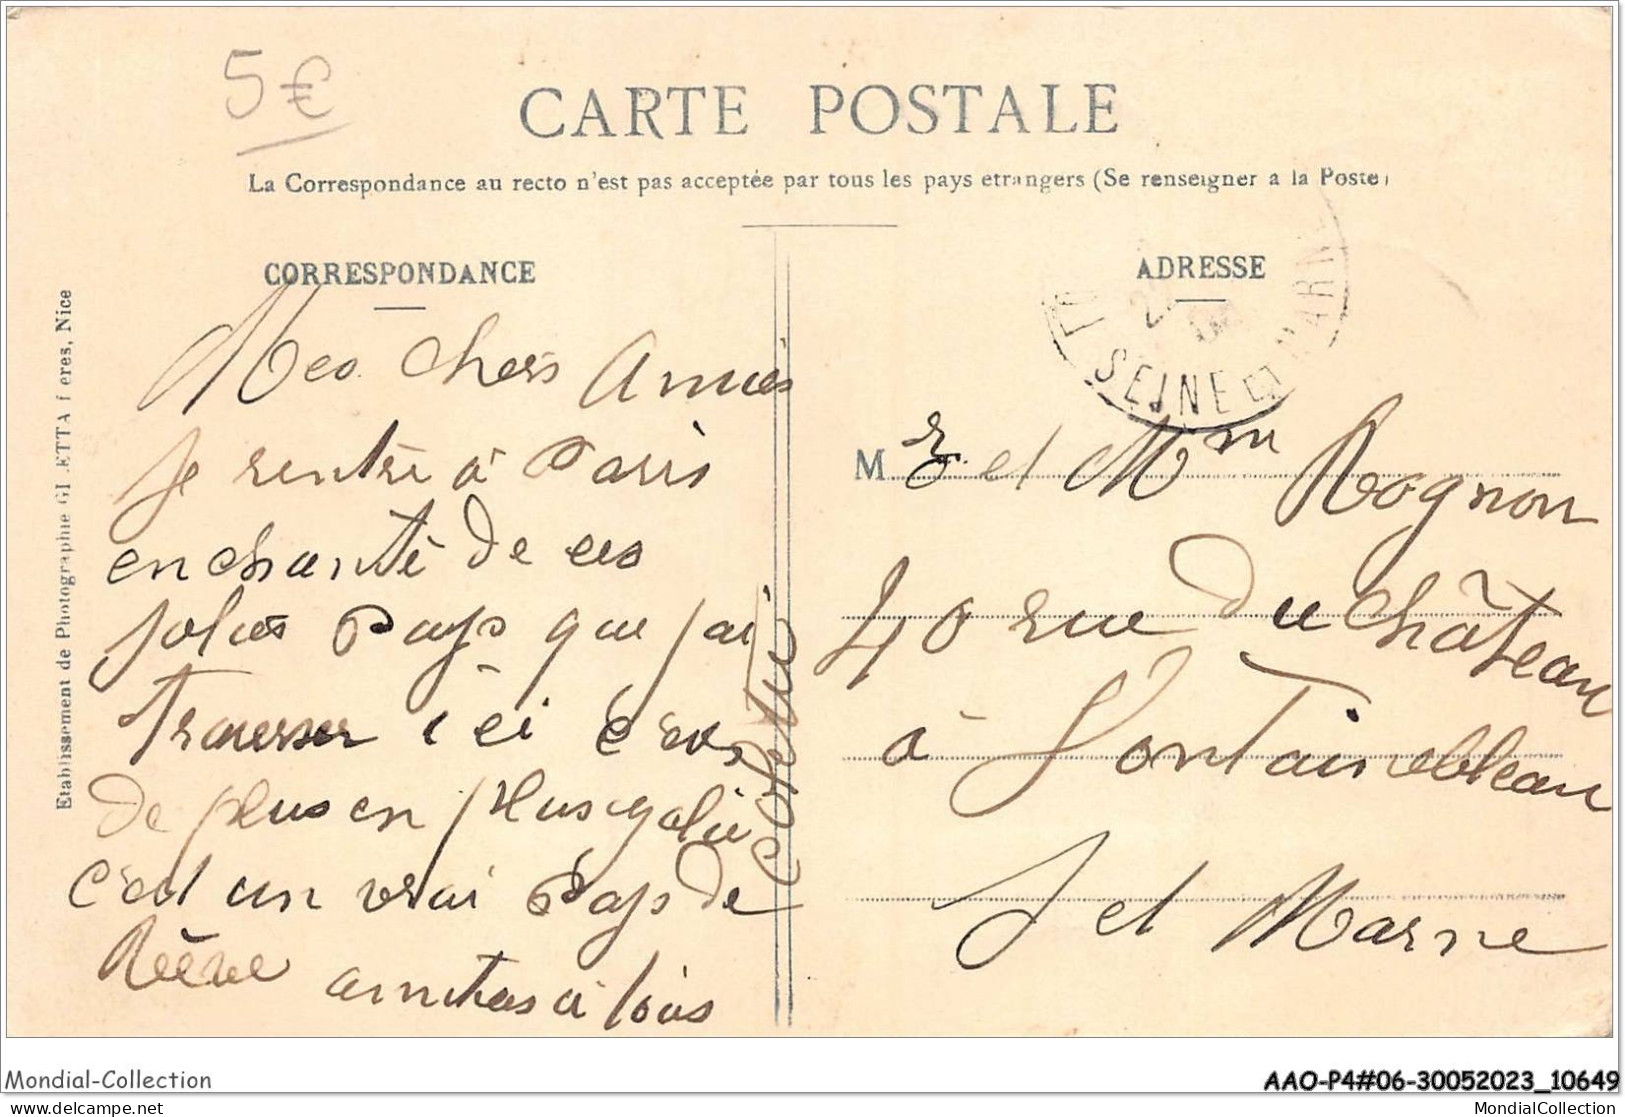 5€
CARTE POSTALE
La Correspondance au recto n'est pas acceptée par tous les pays etrangers (Se renseigner a la Poste)
CORRESPONDANCE
ADRESSE
SEINE ET MARNE
Etablissement de Photographie GILETTA freres, Nice
Mes chers Amies
je rentre à Paris
enchanté de ces
jolies Pays que j'ai
Traverser ici
de plus en plus jolie
c'est un vrai Pays de
Rêve amities à tous
M r. et Mm Rognon
40 rue du Château
à Fontainebleau
S et Marne
Mondial-Collection
AAO-P4#06-30052023_10649
https://www.delcampe.net
MondialCollection